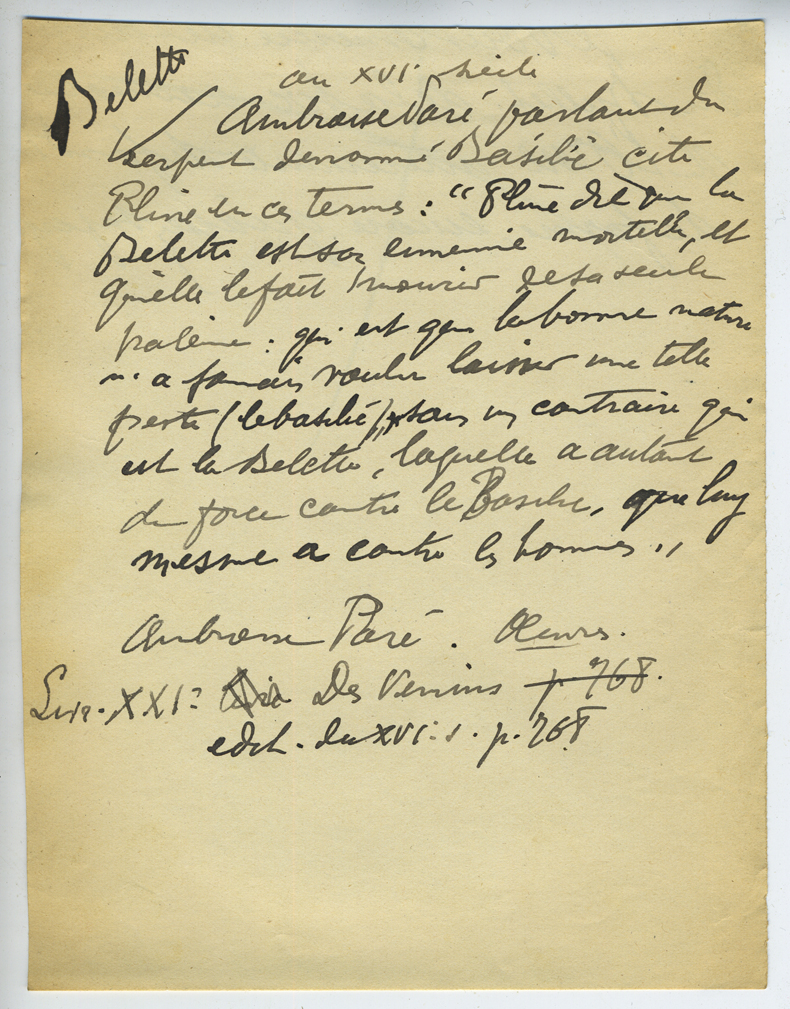 Belette
au XVIe siècle
Ambroise Paré, parlant du
serpent dénommé Basilic cite
Pline en ces termes : "Pline dit que la
Belette est son ennemie mortelle, et
qu'elle le fait mourir de sa seule
haleine : qui est que la bonne nature
n'a jamais voulu laisser une telle
peste (le basilic), sans un contraire qui
est la Belette, laquelle a autant
de force contre le Basilic, que luy
mesme a contre les hommes."
Ambroise Paré. Œuvres.
Livr. XXIe Des Venins p. 768.
edit. du XVIe s. p. 768